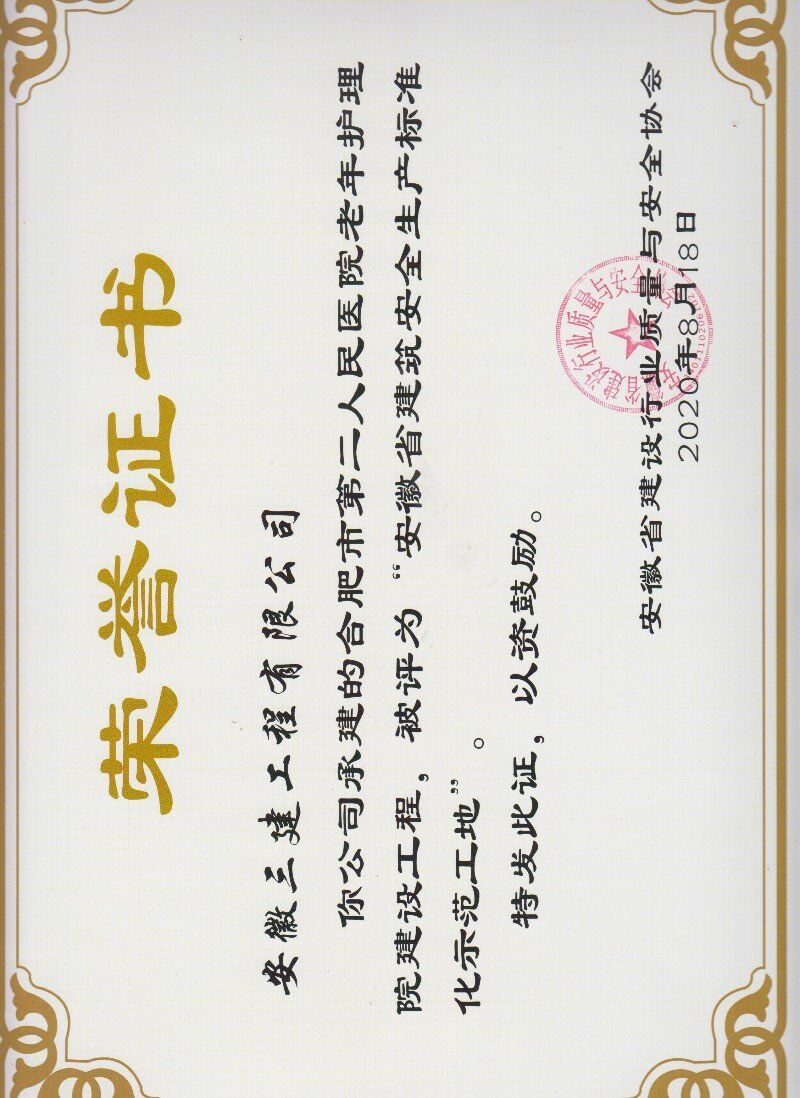 荣誉证书
安徽三建工程有限公司
你公司承建的合肥市第二人民医院老年护理
院建设工程，被评为“安徽省建筑安全生产标准
化示范工地”。
特发此证，以资鼓励。
安徽省建设行业质量与安全协会
2020年8月18日
安徽省建设行业质量与安全协会